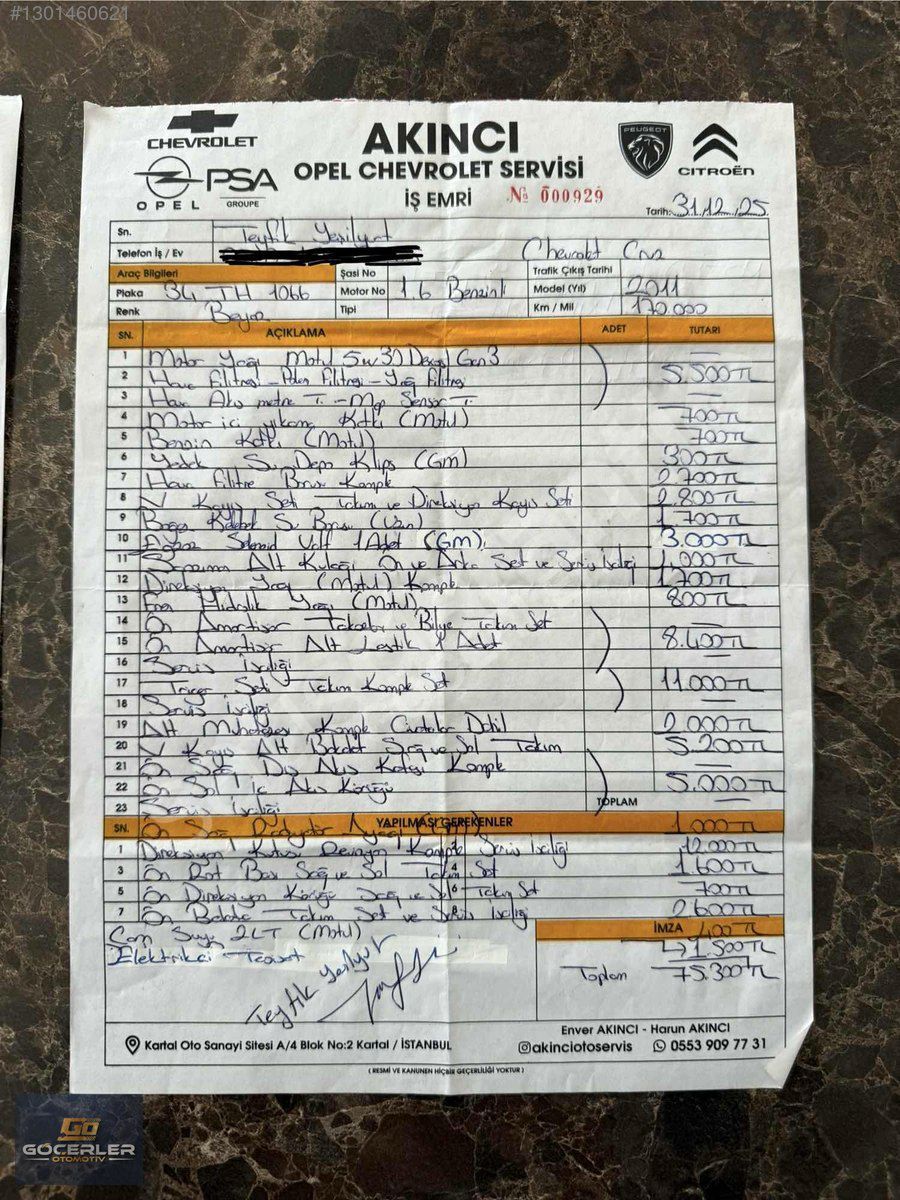 #1301460621
CHEVROLET
AKINCI
PEUGEOT
CITROËN
OPEL
PSA
GROUPE
OPEL CHEVROLET SERVİSİ
İŞ EMRİ
№ 000929
Tarih: 31.12.25
Sn. Teyfik Yeşilyurt
Telefon İş / Ev
Chevrolet Cruz
Araç Bilgileri
Şasi No
Trafik Çıkış Tarihi
Plaka 34 TH 1066
Motor No 1.6 Benzinli
Model (Yıl) 2011
Renk Beyaz
Tipi
Km / Mil 170.000
SN. AÇIKLAMA ADET TUTARI
1 Motor Yağı Motul 5w30 Dexos Gen3
2 Hava Filitresi - Polen Filitresi - Yağ Filitresi 5.500 TL
3 Hava Akış metre T. - Map Sensör T.
4 Motor içi yıkama Katkı (Motul) 700 TL
5 Benzin Katkı (Motul) 700 TL
6 Yedek Su Depo Klips (Gm) 300 TL
7 Hava Filitre Borusu Komple 2.700 TL
8 V Kayış Seti Takım ve Direksiyon Kayış Seti 2.800 TL
9 Boğaz Kelebek Su Borusu (Uzun) 1.700 TL
10 Solenoid Valf 1 Adet (Gm) 3.000 TL
11 Alt Kulağı Ön ve Arka Set ve Servis İşciliği 1.000 TL
12 Direksiyon Yağı (Motul) Komple 1.700 TL
13 Fren Hidrolik Yağı (Motul) 800 TL
14 Ön Amortisör Takozları ve Bilye Takım Set
15 Ön Amortisör Alt Lastik 1 Adet 8.400 TL
16 Servis İşciliği
17 Triger Seti Takım Komple Set 11.000 TL
18 Servis İşciliği
19 Alt Muhafazası Komple Civatalar Dahil 2.000 TL
20 V Kayış Alt Braket Sağ ve Sol Takım 5.200 TL
21 Ön Sağ Dış Aks Kafası Komple
22 Ön Sol İç Aks Körüğü 5.000 TL
23 Servis İşciliği
TOPLAM
Ön Sağ Radyatör Ayağı 1.000 TL
SN. YAPILMASI GEREKENLER
1 Direksiyon Kutusu Revizyon Komple Servis İşciliği 2 12.000 TL
3 Ön Rot Başı Sağ ve Sol Takım Set 4 1.600 TL
5 Ön Direksiyon Körüğü Sağ ve Sol Takım Set 6 700 TL
7 Ön Balata Takım Set ve Servis İşciliği 8 2.600 TL
Cam Suyu 2LT (Motul)
İMZA 400 TL
Elektrikci Tesisat
1.500 TL
Toplam 75.300 TL
Teyfik Yeşilyurt
Enver AKINCI - Harun AKINCI
Kartal Oto Sanayi Sitesi A/4 Blok No:2 Kartal / İSTANBUL
akinciotoservis 0553 909 77 31
( RESMİ VE KANUNEN HİÇBİR GEÇERLİLİĞİ YOKTUR )
GO
GÖÇERLER
OTOMOTİV